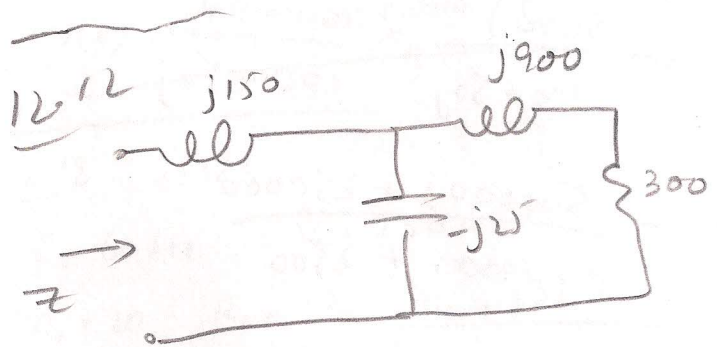 12.12
j150
j900
300
-j25
Z